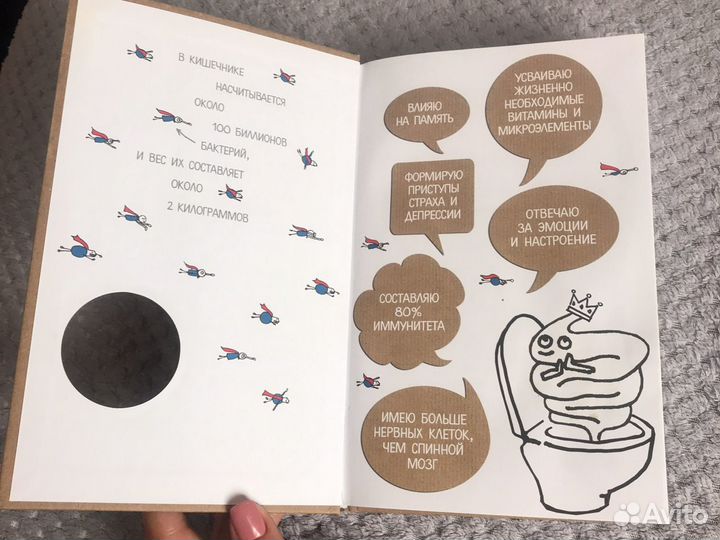 В КИШЕЧНИКЕ
НАСЧИТЫВАЕТСЯ
ОКОЛО
100 БИЛЛИОНОВ
БАКТЕРИЙ,
И ВЕС ИХ СОСТАВЛЯЕТ
ОКОЛО
2 КИЛОГРАММОВ
ВЛИЯЮ
НА ПАМЯТЬ
УСВАИВАЮ
ЖИЗНЕННО
НЕОБХОДИМЫЕ
ВИТАМИНЫ И
МИКРОЭЛЕМЕНТЫ
ФОРМИРУЮ
ПРИСТУПЫ
СТРАХА И
ДЕПРЕССИИ
ОТВЕЧАЮ
ЗА ЭМОЦИИ
И НАСТРОЕНИЕ
СОСТАВЛЯЮ
80%
ИММУНИТЕТА
ИМЕЮ БОЛЬШЕ
НЕРВНЫХ КЛЕТОК,
ЧЕМ СПИННОЙ
МОЗГ
Avito